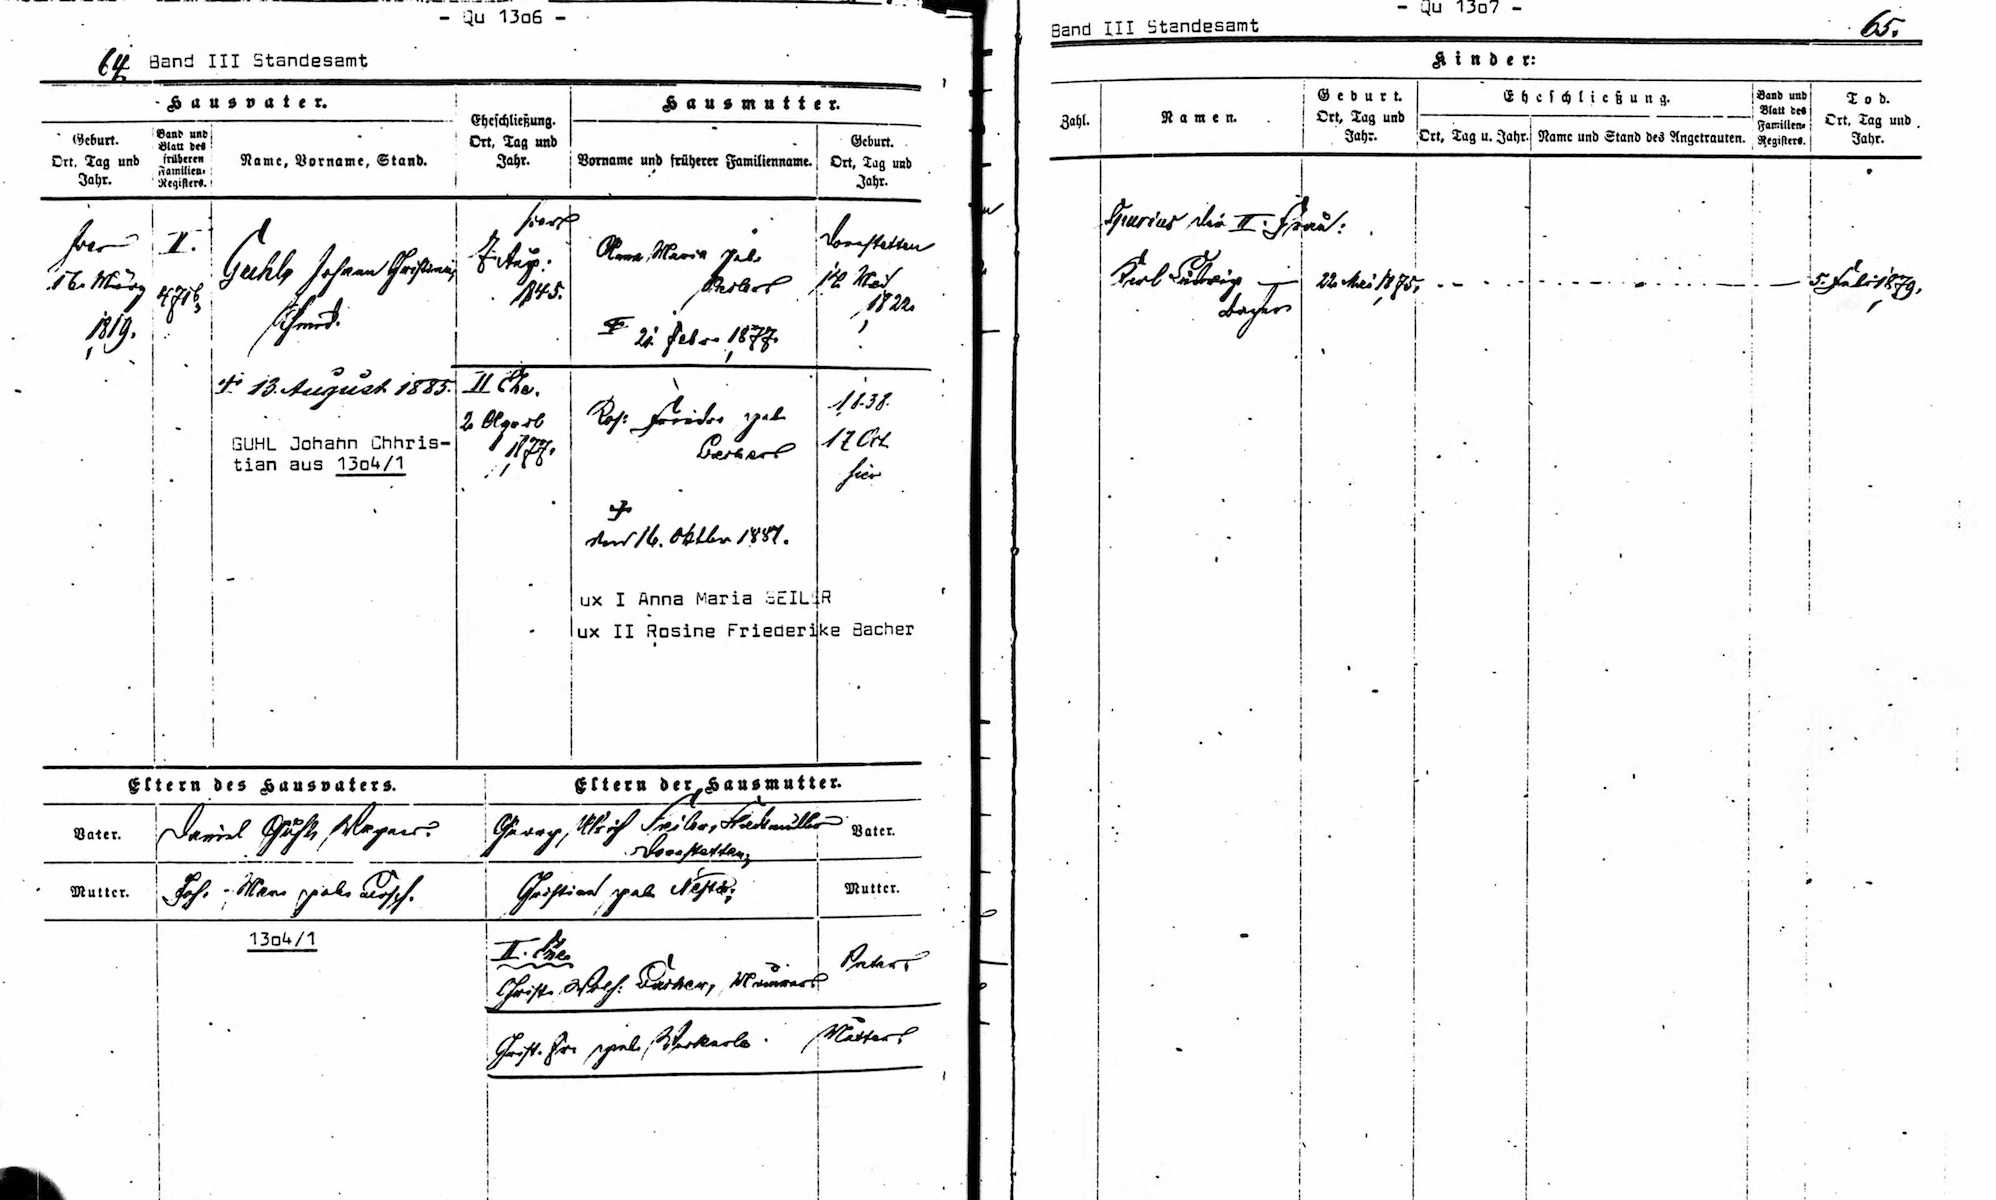 - Qu 13o6 -
64 Band III Standesamt
Hausvater.
Hausmutter.
Geburt.
Ort, Tag und
Jahr.
Band und
Blatt des
früheren
Familien-
Registers.
Name, Vorname, Stand.
Eheschließung.
Ort, Tag und
Jahr.
Vorname und früherer Familienname.
Geburt.
Ort, Tag und
Jahr.
hier
16. März
1819.
II.
Guhl, Johann Christian,
hier
7 Aug.
1845.
Anna Maria geb.
21. Febr. 1877.
Dornstetten
12 Mai
1822
† 13. August 1885.
GUHL Johahn Chhris-
tian aus 13o4/1
II Ehe.
2
1877.
Ros. Friedr. geb.
1838.
17 Oct
hier
†
den 16. Oktbr 1887.
ux I Anna Maria SEILER
ux II Rosine Friederike Bacher
Eltern des Hausvaters.
Eltern der Hausmutter.
Vater.
Daniel Guhl, Wagner.
Georg Ulrich Seiler, Stadtmüller
Dornstetten,
Vater.
Mutter.
Joh. Mar. geb.
Christina geb.
Mutter.
13o4/1
II. Ehe
Christ.
Vater
Christ. Fr. geb.
Mutter
- Qu 13o7 -
Band III Standesamt
65.
Kinder:
Zahl.
Namen.
Geburt.
Ort, Tag und
Jahr.
Eheschließung.
Ort, Tag u. Jahr.
Name und Stand des Angetrauten.
Band und
Blatt des
Familien-
Registers.
Tod.
Ort, Tag und
Jahr.
Spurius der II. Frau:
Karl Ludwig
22 Mai 1875.
5. Juli 1879.